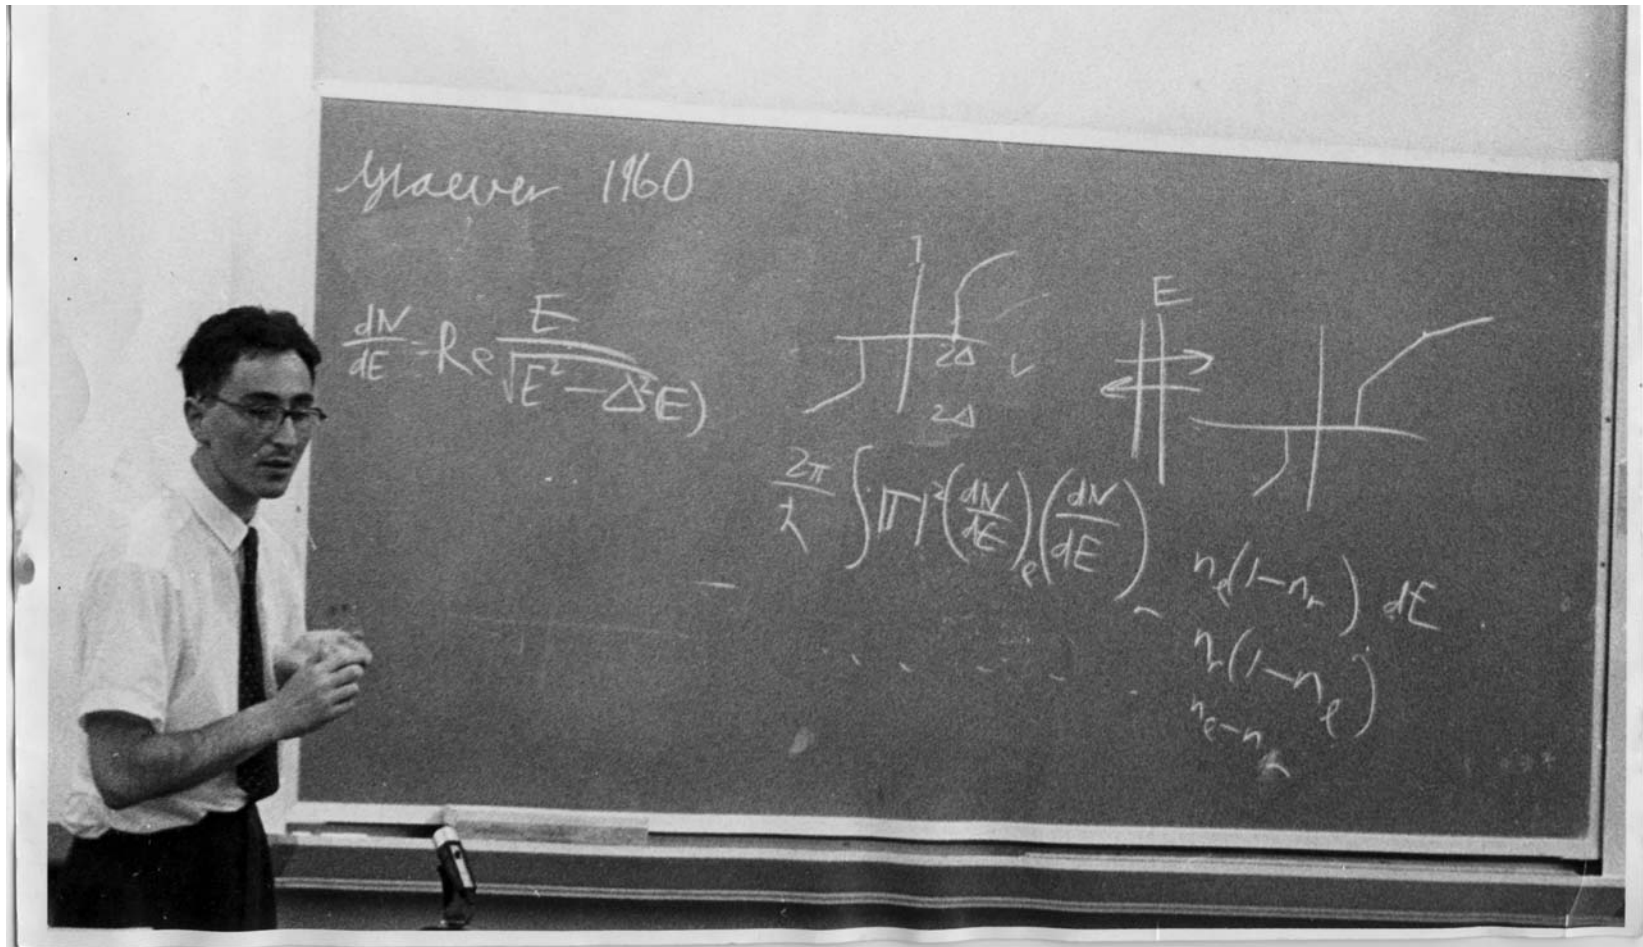 Giaever 1960
dN/dE = Re E/√(E² − Δ²(E))
I
2Δ
V
2Δ
E
2π/ħ ∫ |T|² (dN/dE)ₗ (dN/dE) nₗ(1−nᵣ) dE
nᵣ(1−nₗ)
nₗ−nᵣ